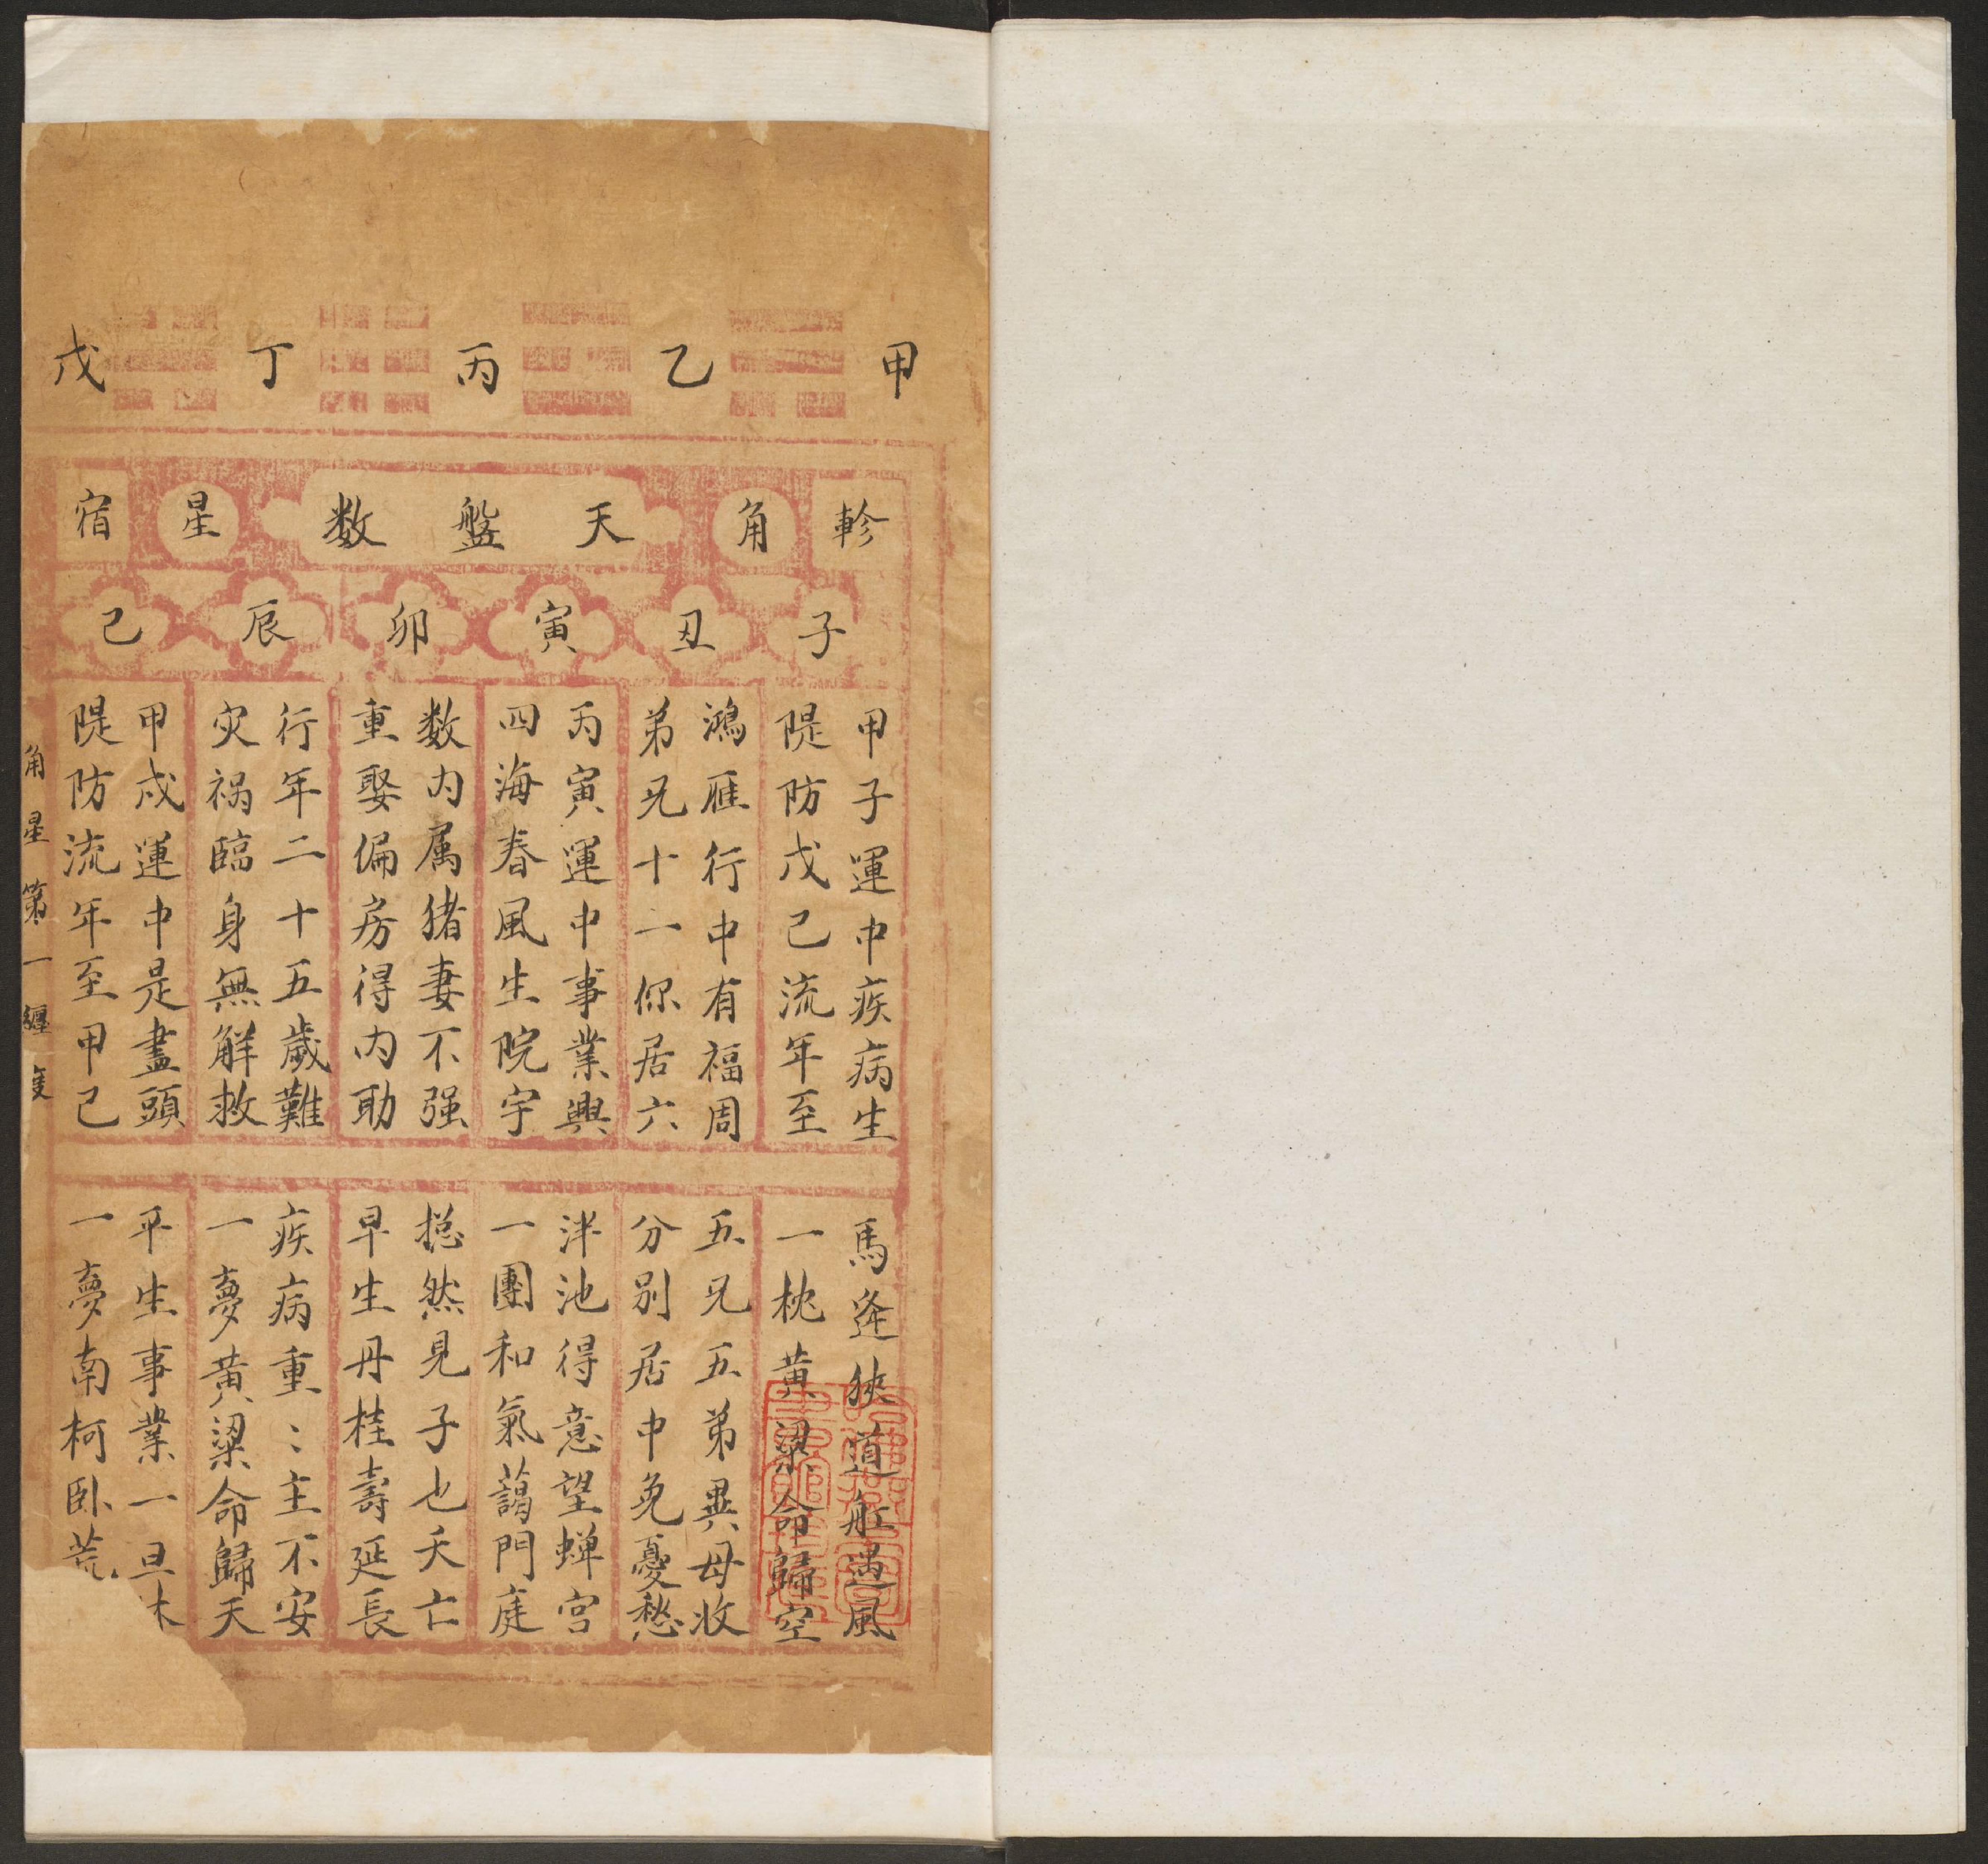 甲乙丙丁戊
軫角天盤数星宿
子丑寅卯辰己
甲子運中疾病生
隄防戊己流年至
馬逢狹道舡遇風
一枕黄粱命歸空
鴻雁行中有福周
弟兄十一你居六
五兄五弟異母收
分别居中免憂愁
丙寅運中事業興
四海春風生院宇
泮池得意望蟬宫
一團和氣藹門庭
数内属猪妻不强
重娶偏房得内助
揔然見子也夭亡
早生丹桂壽延長
行年二十五歲難
灾禍臨身無解救
疾病重〻主不安
一夢黄粱命歸天
甲戌運中是盡頭
隄防流年至甲己
平生事業一旦休
一夢南柯卧荒
角星第一纏度